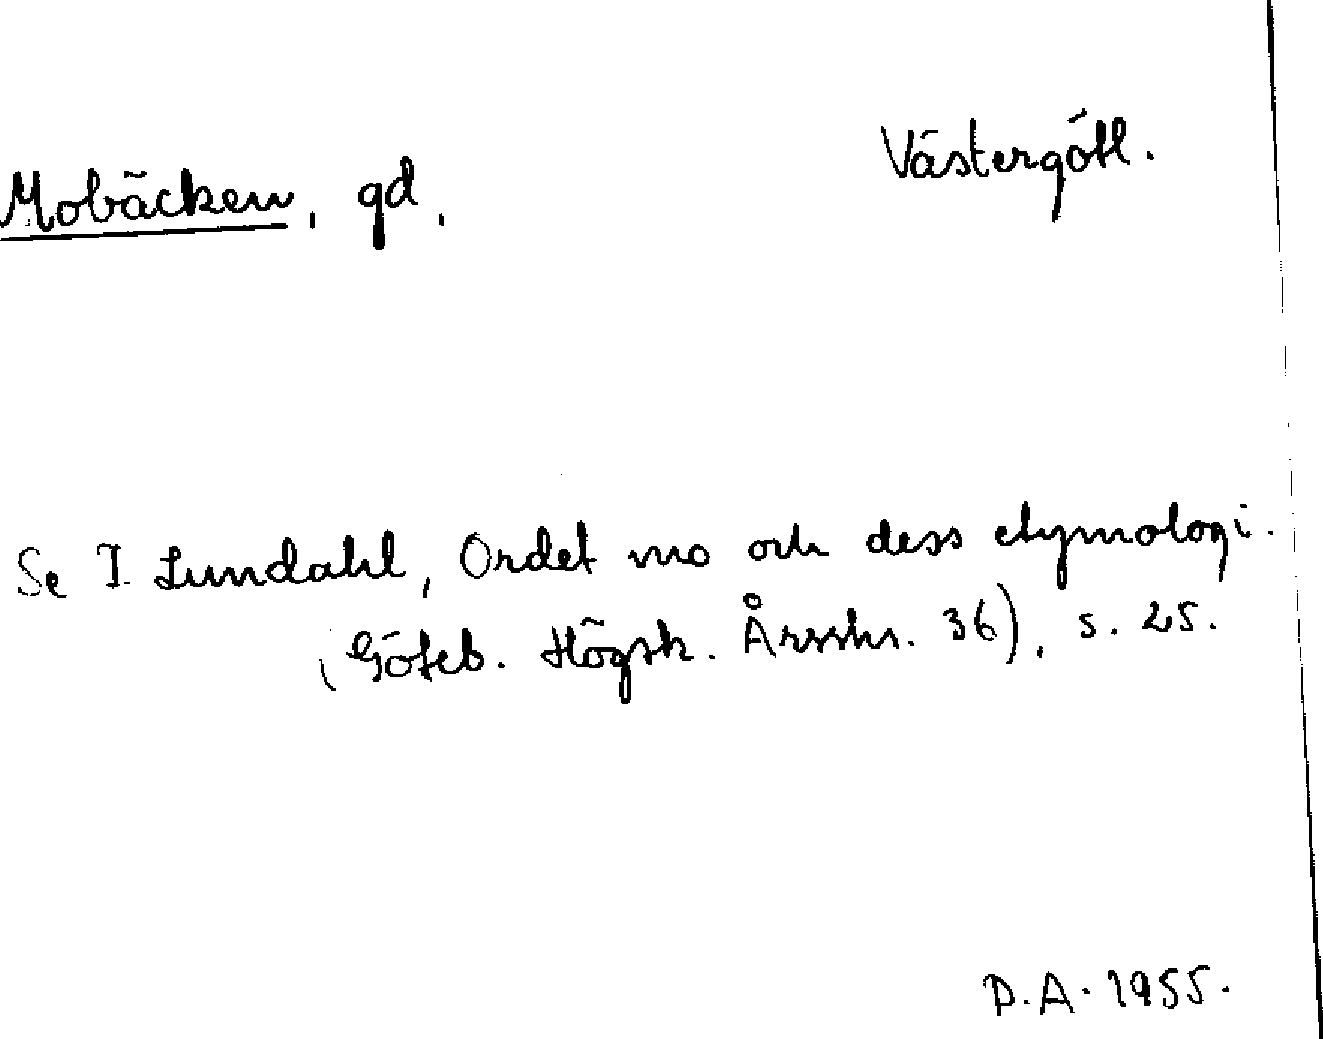 Västergötl.
Mobäcken, gd,
Se I. Lundahl, Ordet mo och dess etymologi.
(Göteb. Högsk. Årsskr. 36), s. 25.
D.A. 1955.